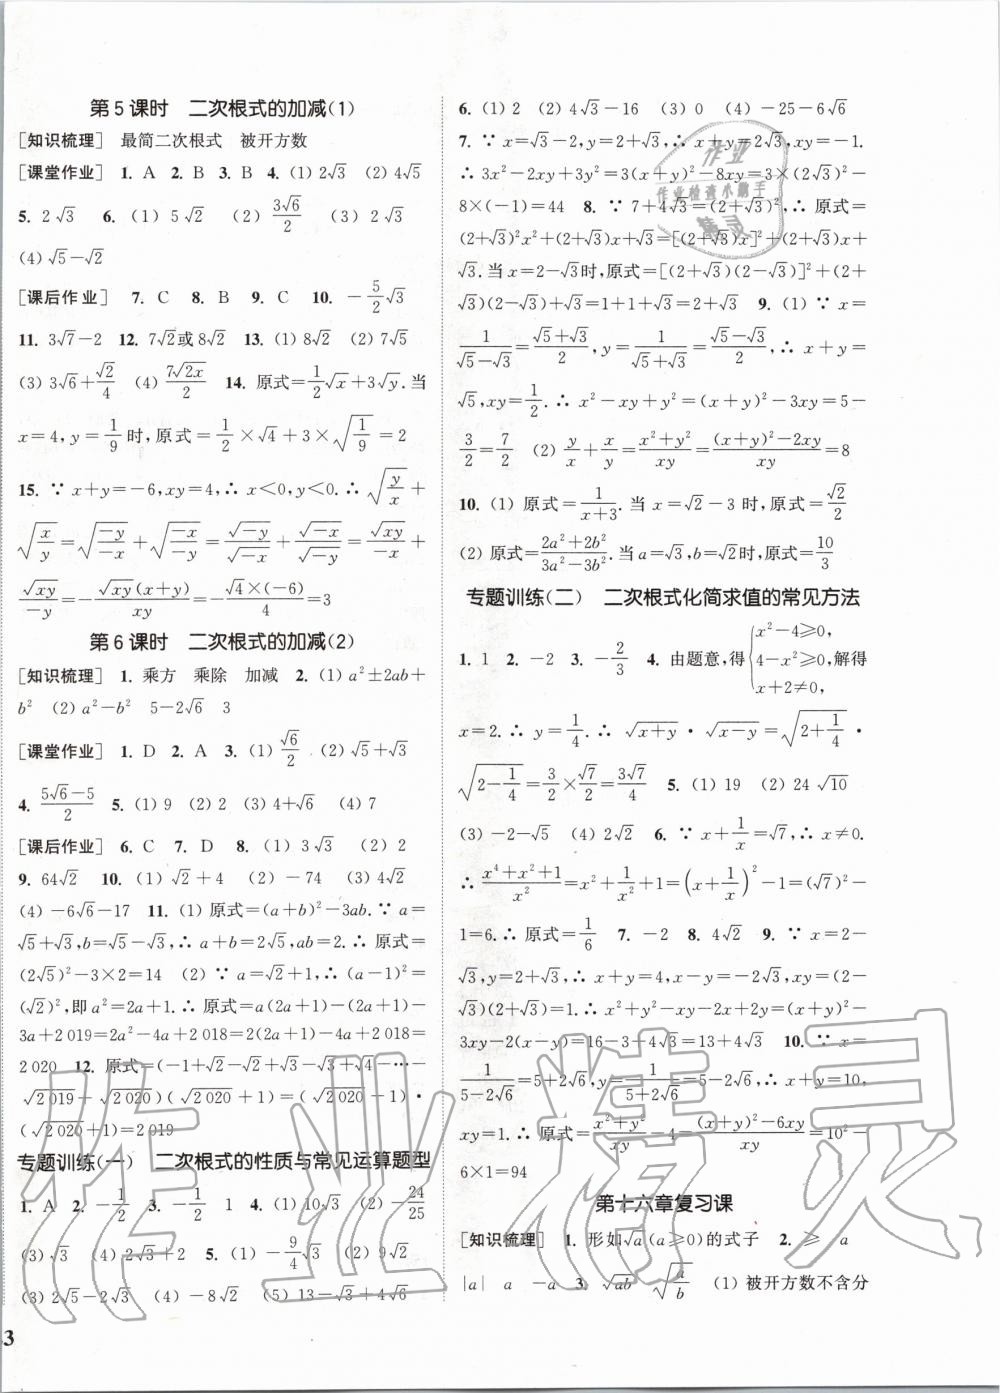 第5课时 二次根式的加减(1)
[知识梳理] 最简二次根式 被开方数
[课堂作业] 1. A 2. B 3. B 4. (1) 2√3 (2) 4√5
5. 2√3 6. (1) 5√2 (2) 3√6/2 (3) 2√3
(4) √5-√2
[课后作业] 7. C 8. B 9. C 10. -5/2√3
11. 3√7-2 12. 7√2或8√2 13. (1) 8√2 (2) 7√5
(3) 3√6+√2/4 (4) 7√2x/2 14. 原式=1/2√x+3√y.当
x=4,y=1/9时,原式=1/2×√4+3×√(1/9)=2
15. ∵ x+y=-6,xy=4,∴ x<0,y<0.∴ √(y/x)+
√(x/y)=√(-y/-x)+√(-x/-y)=√-y/√-x+√-x/√-y=√xy/-x+
√xy/-y=-√xy(x+y)/xy=-√4×(-6)/4=3
第6课时 二次根式的加减(2)
[知识梳理] 1. 乘方 乘除 加减 2. (1) a²±2ab+
b² (2) a²-b² 5-2√6 3
[课堂作业] 1. D 2. A 3. (1) √6/2 (2) √5+√3
4. (5√6-5)/2 5. (1) 9 (2) 2 (3) 4+√6 (4) 7
[课后作业] 6. C 7. D 8. (1) 3√3 (2) 2
9. 64√2 10. (1) √2+4 (2) -74 (3) 4√2
(4) -6√6-17 11. (1) 原式=(a+b)²-3ab.∵ a=
√5+√3,b=√5-√3,∴ a+b=2√5,ab=2.∴ 原式=
(2√5)²-3×2=14 (2) ∵ a=√2+1,∴ (a-1)²=
(√2)²,即a²=2a+1.∴ 原式=a(2a+1)-(2a+1)-
3a+2 019=2a²-4a+2 018=2(2a+1)-4a+2 018=
2 020 12. 原式=(-1+√2-√2+√3-√3+√4-…-
√2 019+√2 020)(√2 020+1)=(√2 020-1)·
(√2 020+1)=2 019
专题训练(一) 二次根式的性质与常见运算题型
1. A 2. -1/2 3. -1/2 1 4. (1) 10√3 (2) -24/25
(3) √3 (4) 2√3+2 5. (1) -9/4√3 (2) 9√2
(3) 2√5-2√3 (4) -8√2 (5) 13-√3+4√6
3
6. (1) 2 (2) 4√3-16 (3) 0 (4) -25-6√6
7. ∵ x=√3-2,y=2+√3,∴ x+y=2√3,xy=-1.
∴ 3x²-2xy+3y²=3(x+y)²-8xy=3×(2√3)²-
8×(-1)=44 8. ∵ 7+4√3=(2+√3)²,∴ 原式=
(2+√3)²x²+(2+√3)x+√3=[(2+√3)x]²+(2+√3)x+
√3.当x=2-√3时,原式=[(2+√3)(2-√3)]²+(2+
√3)(2-√3)+√3=1+1+√3=2+√3 9. (1) ∵ x=
1/(√5-√3)=(√5+√3)/2,y=1/(√5+√3)=(√5-√3)/2,∴ x+y=
√5,xy=1/2.∴ x²-xy+y²=(x+y)²-3xy=5-
3/2=7/2 (2) y/x+x/y=(x²+y²)/xy=((x+y)²-2xy)/xy=8
10. (1) 原式=1/(x+3).当x=√2-3时,原式=√2/2
(2) 原式=(2a²+2b²)/(3a²-3b²).当a=√3,b=√2时,原式=10/3
专题训练(二) 二次根式化简求值的常见方法
1. 1 2. -2 3. -2/3 4. 由题意,得{x²-4≥0, 4-x²≥0, x+2≠0, 解得
x=2.∴ y=1/4.∴ √(x+y)·√(x-y)=√(2+1/4)·
√(2-1/4)=3/2×√7/2=3√7/4 5. (1) 19 (2) 24√10
(3) -2-√5 (4) 2√2 6. ∵ x+1/x=√7,∴ x≠0.
∴ (x⁴+x²+1)/x²=x²+1/x²+1=(x+1/x)²-1=(√7)²-
1=6.∴ 原式=1/6 7. -2 8. 4√2 9. ∵ x=2-
√3,y=2+√3,∴ x+y=4,x-y=-2√3,xy=(2-
√3)(2+√3)=1.∴ x²+y²-xy-2x+2y=(x+y)²-
3xy-2(x-y)=16-3+4√3=13+4√3 10. ∵ x=
1/(5-2√6)=5+2√6,y=1/(5+2√6)=5-2√6,∴ x+y=10,
xy=1.∴ 原式=(x²+y²)/xy-4=((x+y)²-6xy)/xy=10²-
6×1=94
第十六章复习课
[知识梳理] 1. 形如√a(a≥0)的式子 2. ≥ a
|a| a -a 3. √ab √(a/b) (1) 被开方数不含分